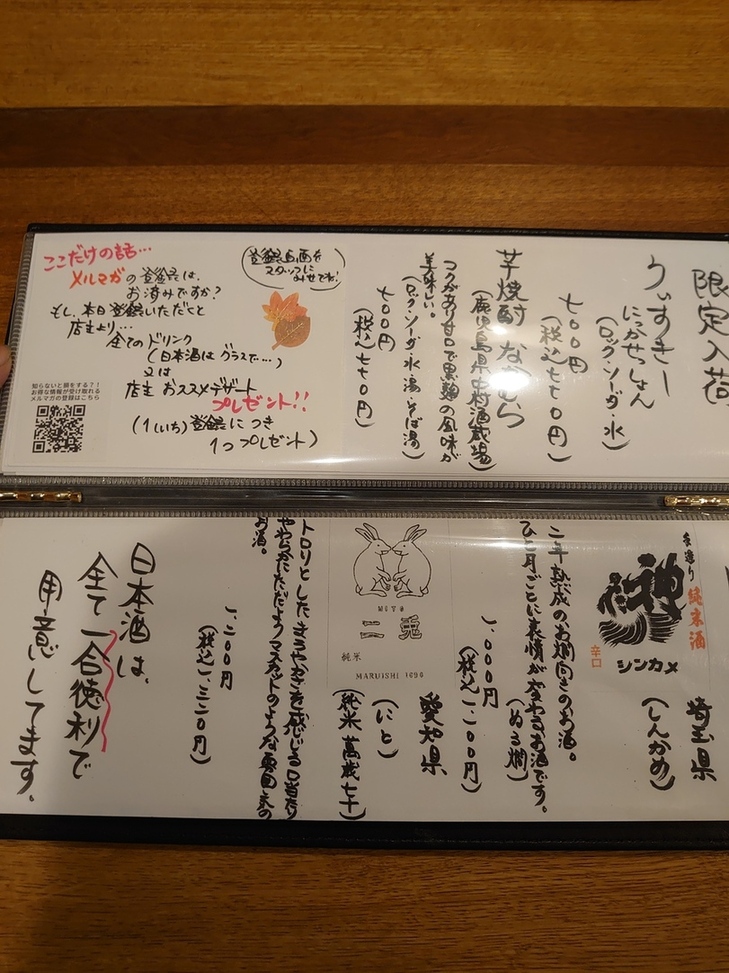 限定入荷
うぃすきー
にっかせっしょん
(ロック・ソーダ・水)
七〇〇円
(税込)七七〇円)
芋焼酎 なかむら
(鹿児島県中村酒蔵場)
コクがあり甘口で黒麹の風味が
美味しい。
(ロック・ソーダ・水・湯・そば湯)
七〇〇円
(税込)七七〇円)
登録画面を
スタッフに
みせてね!
ここだけの話…
メルマガの登録は、
お済みですか?
もし、本日登録いただくと
店主より…
全てのドリンク
(日本酒はグラスで…)
又は
店主おススメデザート
プレゼント!!
(1(いち)登録につき
1つプレゼント)
知らないと損をする?!
お得な情報が受け取れる
メルマガの登録はこちら
手造り 純米酒
神亀
辛口
シンカメ
埼玉県
(しんかめ)
二年熟成のお燗向きのお酒。
ひと月ごとに表情が変わるお酒です。
(ぬる燗)
一、〇〇〇円
(税込)一、一〇〇円)
二兎
純米
MARUISHI 1690
愛知県
(にと)
(純米 萬歳七十)
トロリとしたまろやかさを感じる口当たり
やわらかにただようマスカットのような果実味の
お酒。
一、二〇〇円
(税込)一、三二〇円)
日本酒は、
全て一合徳利で
用意してます。